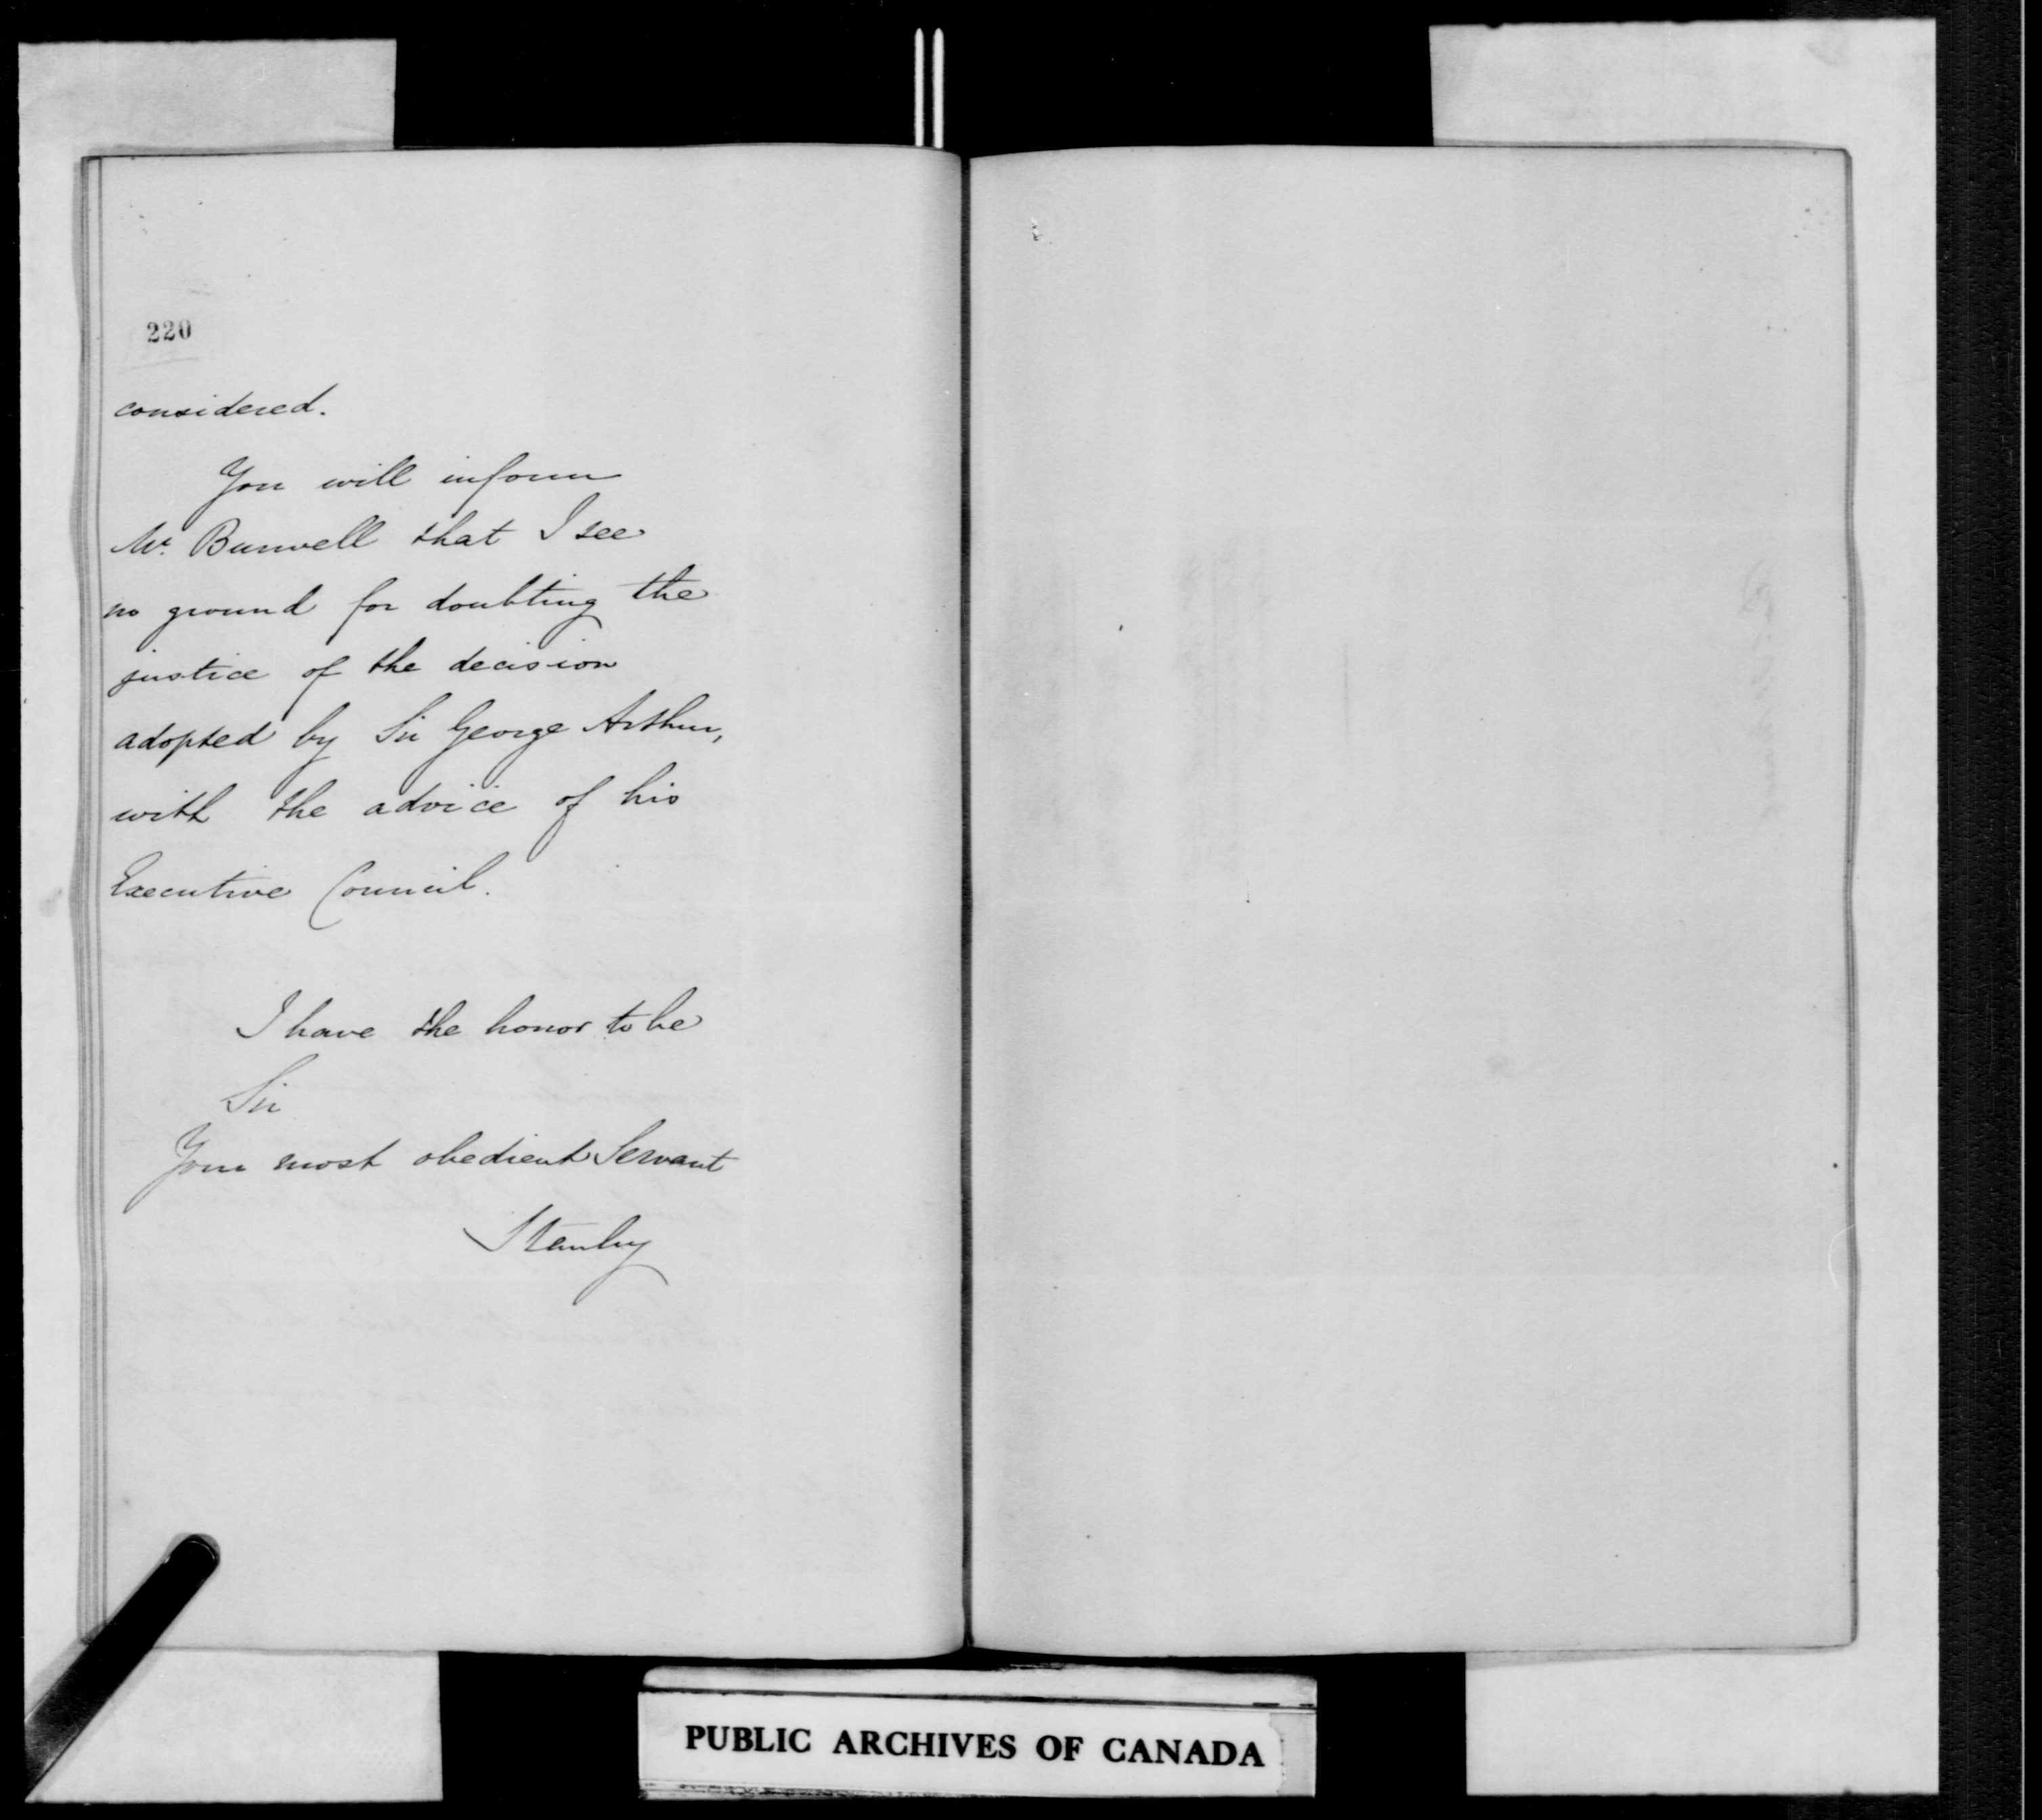 220
considered.
You will inform
Mr. Burwell that I see
no ground for doubting the
justice of the decision
adopted by Sir George Arthur,
with the advice of his
Executive Council.
I have the honor to be
Sir
Your most obedient Servant
Stanley
PUBLIC ARCHIVES OF CANADA